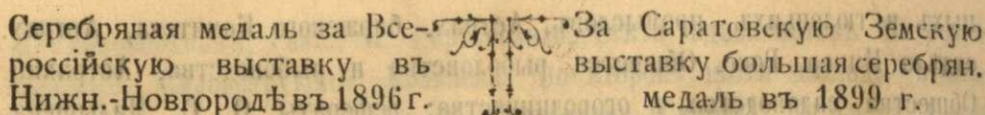 Серебряная медаль за Все-
россійскую выставку въ
Нижн.-Новгородѣ въ 1896 г.
За Саратовскую Земскую
выставку большая серебрян.
медаль въ 1899 г.